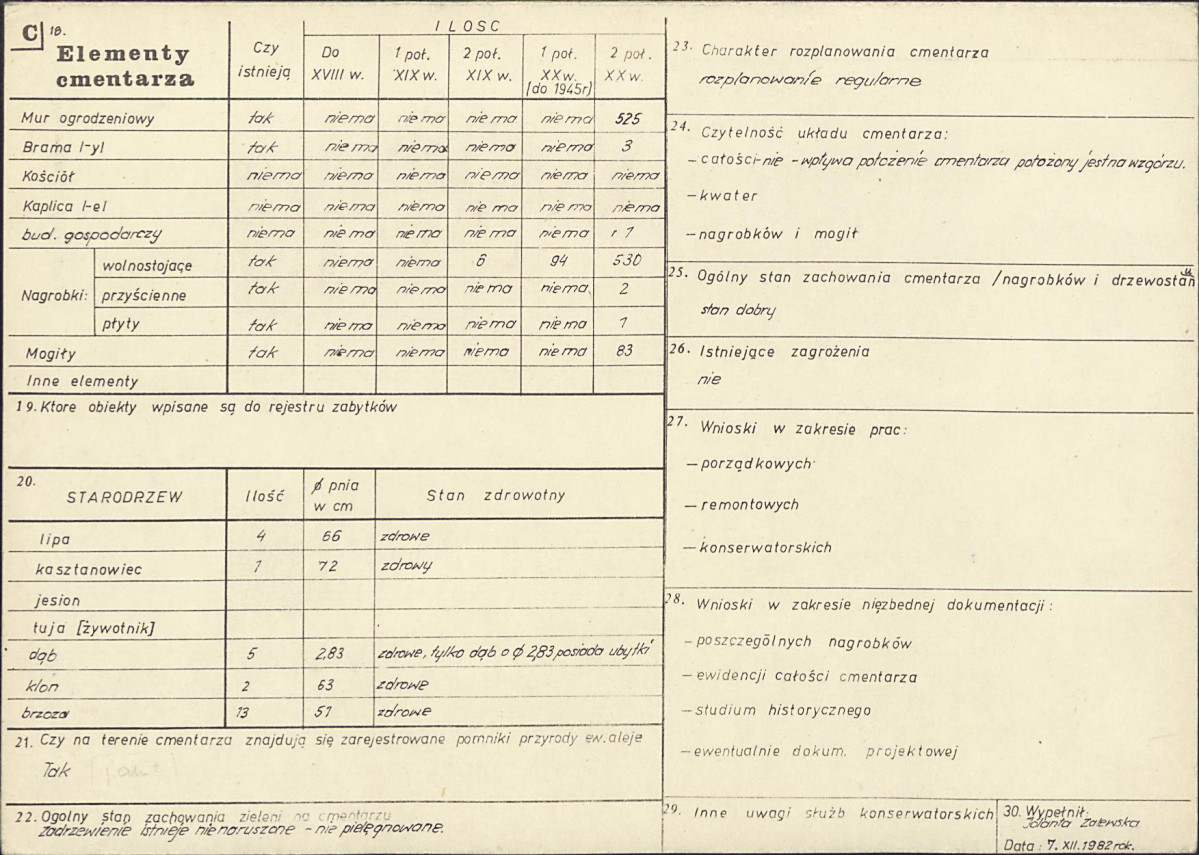 C 18.
Elementy cmentarza
Czy istnieją
ILOSC
Do XVIII w.
1 poł. XIX w.
2 poł. XIX w.
1 poł. XX w. (do 1945r)
2 poł. XX w.
Mur ogrodzeniowy tak niema niema niema niema 525
Brama /-y/ tak niema niema niema niema 3
Kościół niema niema niema niema niema niema
Kaplica /-e/ niema niema niema niema niema niema
bud. gospodarczy niema niema niema niema niema 1
Nagrobki:
wolnostojące tak niema niema 6 94 530
przyścienne tak niema niema niema niema 2
płyty tak niema niema niema niema 1
Mogiły tak niema niema niema niema 83
Inne elementy
19. Ktore obiekty wpisane są do rejestru zabytków
20. STARODRZEW Ilość ø pnia w cm Stan zdrowotny
lipa 4 66 zdrowe
kasztanowiec 1 72 zdrowy
jesion
tuja [żywotnik]
dąb 5 2,83 zdrowe, tylko dąb o ø 2,83 posiada ubytki
klon 2 63 zdrowe
brzoza 13 51 zdrowe
21. Czy na terenie cmentarza znajdują się zarejestrowane pomniki przyrody ew. aleje
Tak
22. Ogolny stan zachowania zieleni na cmentarzu
zadrzewienie istnieje nienaruszone - nie pielęgnowane.
23. Charakter rozplanowania cmentarza
rozplanowanie regularne
24. Czytelność układu cmentarza:
- całości-nie - wpływa połozenie cmentarza położony jest na wzgórzu.
- kwater
- nagrobków i mogił
25. Ogólny stan zachowania cmentarza /nagrobków i drzewostanu
stan dobry
26. Istniejące zagrożenia
nie
27. Wnioski w zakresie prac:
- porządkowych
- remontowych
- konserwatorskich
28. Wnioski w zakresie nięzbednej dokumentacji:
- poszczególnych nagrobków
- ewidencji całości cmentarza
- studium historycznego
- ewentualnie dokum. projektowej
29. Inne uwagi służb konserwatorskich
30. Wypełnił:
Jolanta Zalewska
Data: 7. XII. 1982 rok.